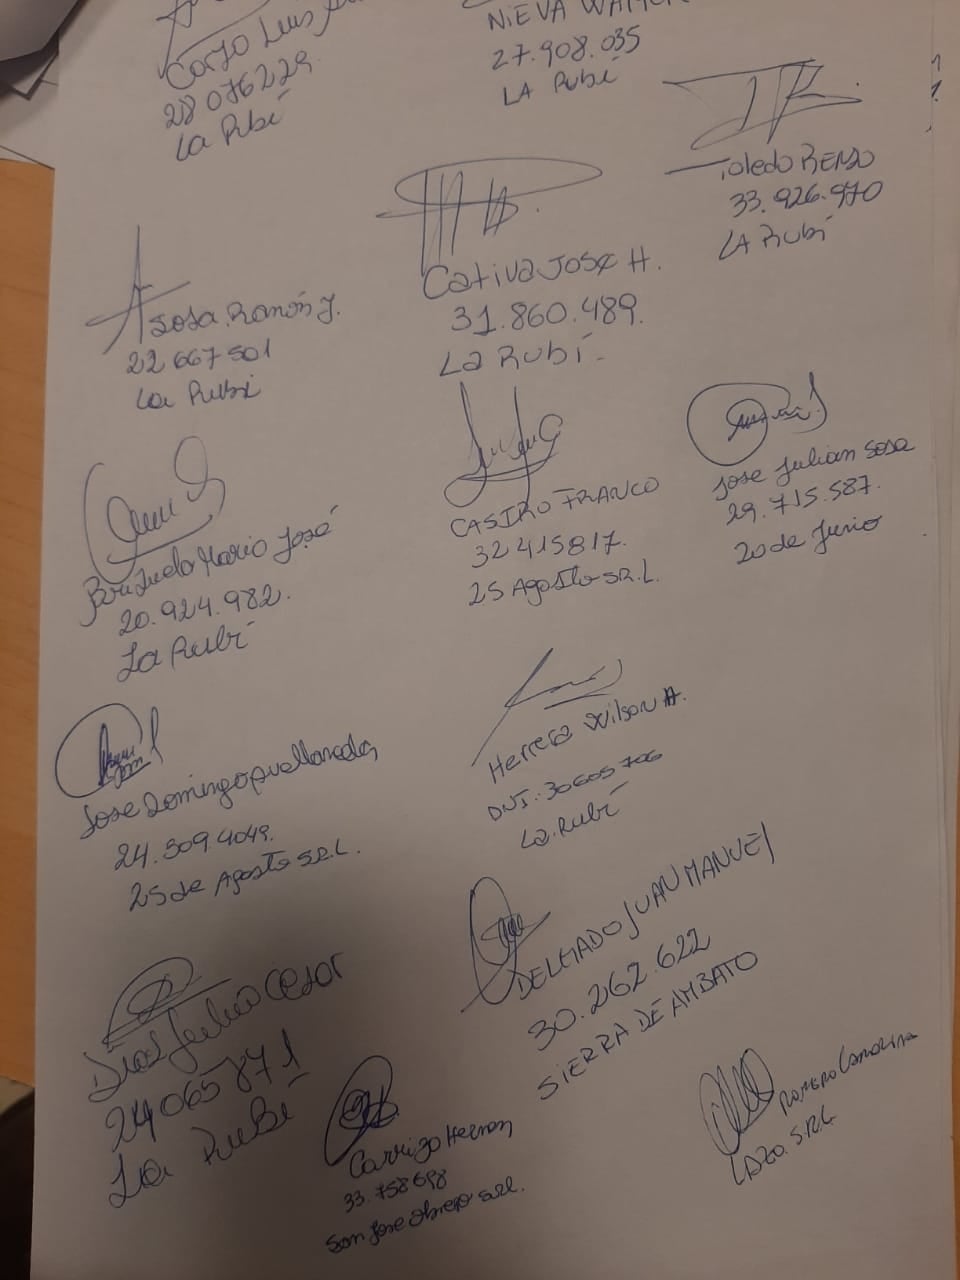 Corzo Luis
28076229
La Rubí
NIEVA
27.908.035
LA Rubí
Toledo RENZO
33.926.970
LA Rubí
Cativa José H.
31.860.489.
La Rubí.
Sosa. Ramón J.
22 667 501
La Rubí
CASTRO FRANCO
32 415817.
25 Agosto S.R.L.
Jose Julian Sosa
29.715.587.
20 de Junio
Mario José
20.924.982.
La Rubí
Herrera Wilson A.
DNI: 30605706
La. Rubí
Jose Domingo
24.309.4049.
25 de Agosto S.R.L.
DELGADO JUAN MANUEL
30.262.622
SIERRA DE AMBATO
Diaz Julio Cesar
24065871
La Rubí
Carrizo Hernan
33.758698
San Jose Obrero S.R.L.
ROMERO CAROLINA
LAZO. S.R.L